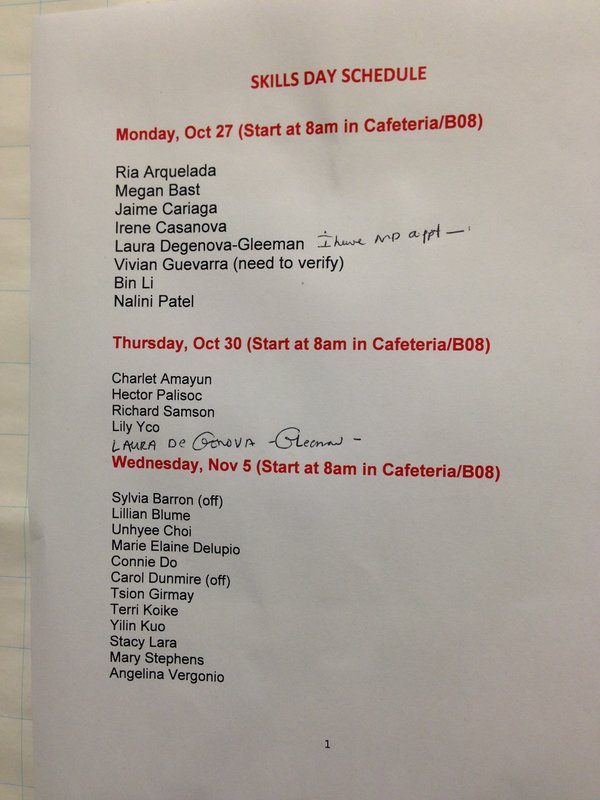 SKILLS DAY SCHEDULE
Monday, Oct 27 (Start at 8am in Cafeteria/B08)
Ria Arquelada
Megan Bast
Jaime Cariaga
Irene Casanova
Laura Degenova-Gleeman I have MD appt —.
Vivian Guevarra (need to verify)
Bin Li
Nalini Patel
Thursday, Oct 30 (Start at 8am in Cafeteria/B08)
Charlet Amayun
Hector Palisoc
Richard Samson
Lily Yco
LAURA De GENOVA - Gleeman -
Wednesday, Nov 5 (Start at 8am in Cafeteria/B08)
Sylvia Barron (off)
Lillian Blume
Unhyee Choi
Marie Elaine Delupio
Connie Do
Carol Dunmire (off)
Tsion Girmay
Terri Koike
Yilin Kuo
Stacy Lara
Mary Stephens
Angelina Vergonio
1